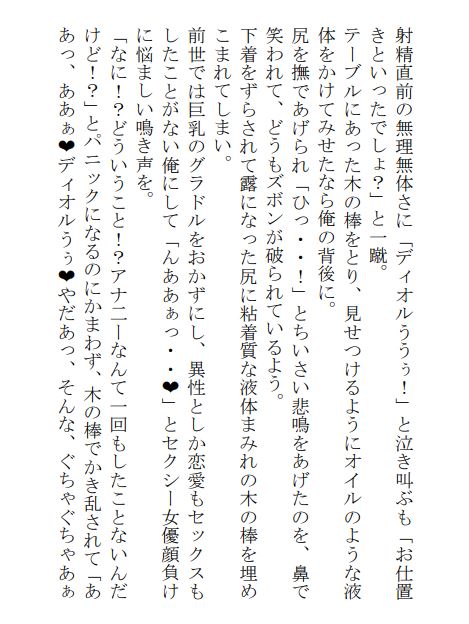 射精直前の無理無体さに「ディオルううぅ！」と泣き叫ぶも「お仕置
きといったでしょ？」と一蹴。
テーブルにあった木の棒をとり、見せつけるようにオイルのような液
体をかけてみせたなら俺の背後に。
尻を撫であげられ「ひっ・・！」とちいさい悲鳴をあげたのを、鼻で
笑われて、どうもズボンが破られているよう。
下着をずらされて露になった尻に粘着質な液体まみれの木の棒を埋め
こまれてしまい。
前世では巨乳のグラドルをおかずにし、異性としか恋愛もセックスも
したことがない俺にして「んああぁっ・・❤」とセクシー女優顔負け
に悩ましい鳴き声を。
「なに！？どういうこと！？アナニーなんて一回もしたことないんだ
けど！？」とパニックになるのにかまわず、木の棒でかき乱されて「あ
あっ、ああぁ❤ディオルうぅ❤やだあっ、そんな、ぐちゃぐちゃあぁ